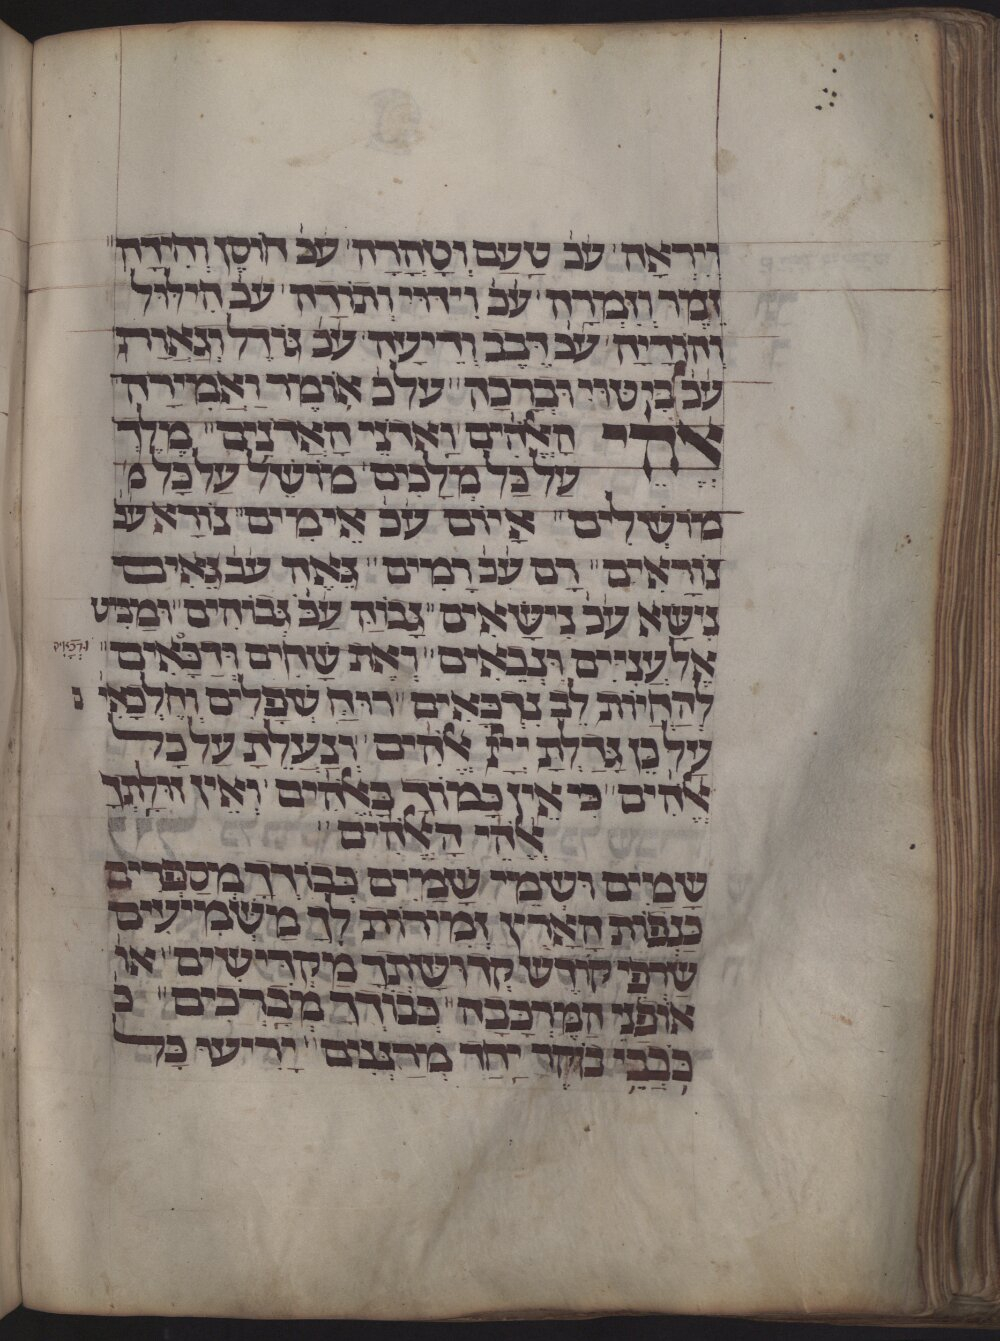 וְיִרְאָה׳ עֹב טַעַם וְטָהֳרָה׳ עֹב חוֹסֶן וְחִידָה
זֶמֶר וְזִמְרָה׳ עֹב וִידּוּי וְתוֹדָה׳ עֹב הִילּוּל
וְהוֹדָיָה׳ עֹב
עֹב קִישּׁוּי וּבְרָכָה׳׳ עֹל כֹּ אוֹמֶר וַאֲמִירָה
אלהי הָאֱלֹהִים וַאֲדֹנֵי הָאֲדֹנִים׳׳ מֶלֶךְ
עַל כָּל מְלָכִים׳ מוֹשֵׁל עַל כָּל מֹ
מוֹשְׁלִים׳׳ אָיוֹם עֹב אֵימִים׳׳ נוֹרָא עֹ
נוֹרָאִים׳׳ רָם עֹב רָמִים׳׳ גֵּאֶה עֹב גֵּאִים
נִישָּׂא עֹב נִישָּׂאִים׳׳ גָּבוֹהַּ עֹב גְּבוֹהִים׳׳ וּמַבִּיט
אֶל עֲנִיִּים וְנִבָאִים׳׳ וְאֶת שַׁחִים וְדַכָּאִים׳׳
לְהַחֲיוֹת לֵב נִדְכָּאִים׳׳ רוּחַ שְׁפָלִים וְחֶלְכָּאִי
ם
עַל כֵּן גָּדַלְתָּ יְיָ אֱלֹהִים׳ וְנַעֲלֵתָ עַל כָּל
אֱלֹהִים׳׳ כִּי אֵין כָּמוֹךָ בָּאֱלֹהִים׳ וְאֵין זוּלָתָךְ
אֱלֹהֵי הָאֱלֹהִים׳׳
שָׁמַיִם וּשְׁמֵי שָׁמַיִם כְּבוֹדְךָ מְסַפְּרִים
כַּנְפוֹת הָאָרֶץ זְמִירוֹת לְךָ מַשְׁמִיעִים
שַׂרְפֵי קוֹדֶשׁ קְדוּשָּׁתְךָ מַקְדִּישִׁים׳׳ או
אוֹפַנֵּי הַמֶּרְכָּבָה׳׳ כְּבוֹדְךָ מְבָרְכִים׳׳ כֹ
כֹּכְבֵי בוֹקֶר יַחַד מְרַנְּנִים׳׳ יָרִיעוּ כָּל